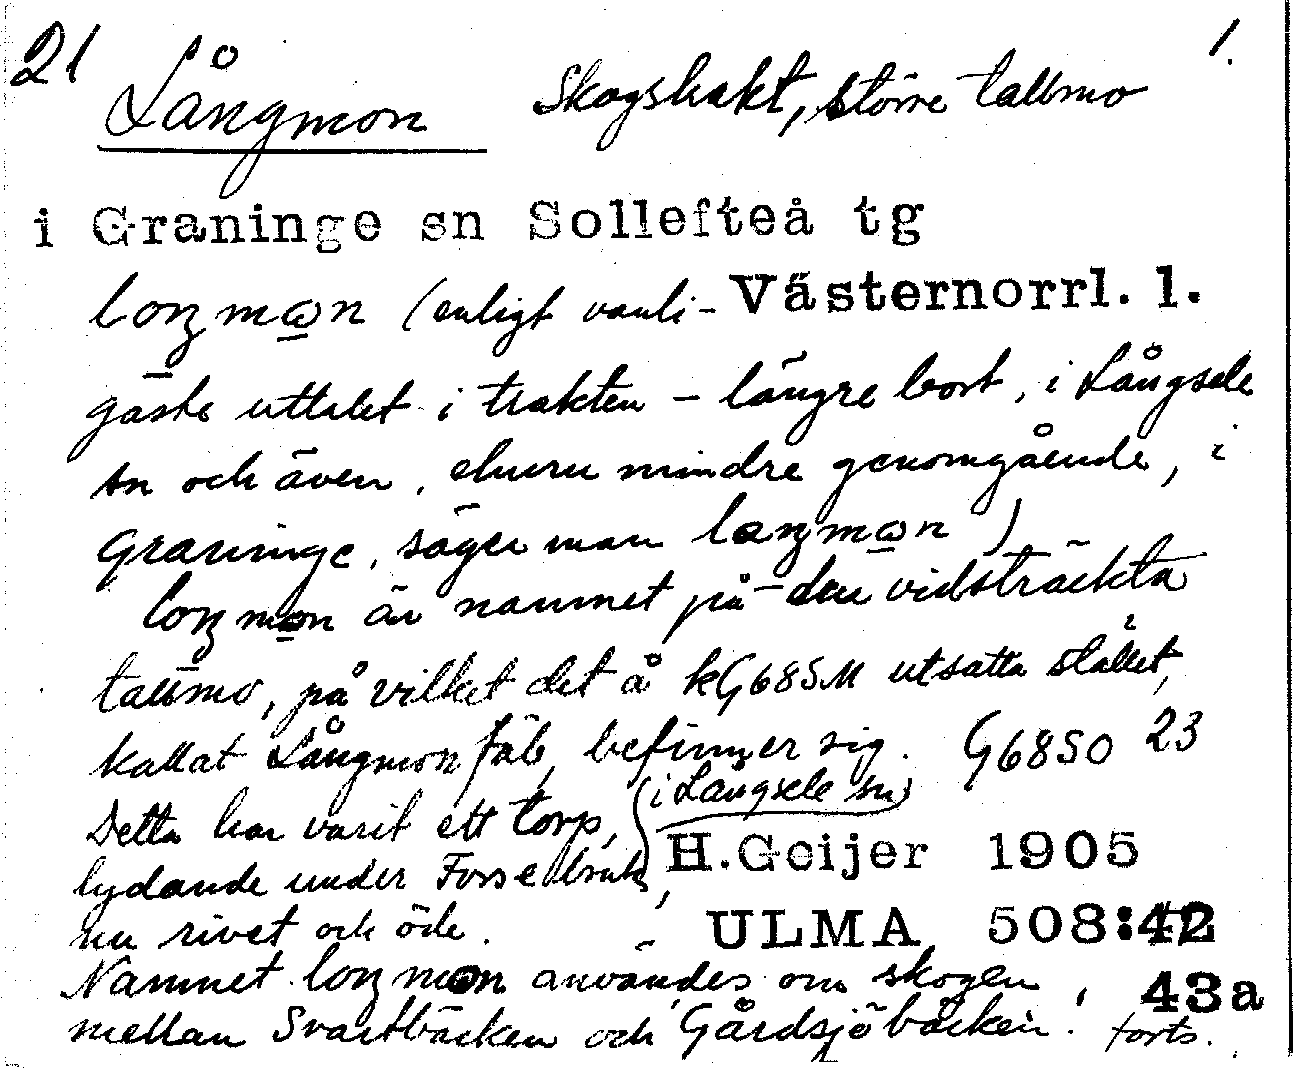 21 Långmon Skogstrakt, större tallmo 1.
i Graninge sn Sollefteå tg
loŋmωn (enligt vanli- Västernorrl. l.
gaste uttalet i trakten – längre bort, i Långsele
sn och även, ehuru mindre genomgående, i
Graninge, säger man laŋmωn)
loŋmωn är namnet på den vidsträckta
tallmo, på vilket det å kG68SM utsatta stället,
kallat Långmon fäb, befinner sig. G68SO 23
Detta har varit ett torp, (i Långsele sn)
lydande under Forse bruk, H.Geijer 1905
nu rivet och öde. ULMA 508:42
Namnet loŋmωn användes om skogen 43a
mellan Svartbäcken och Gårdsjöbäcken. forts.